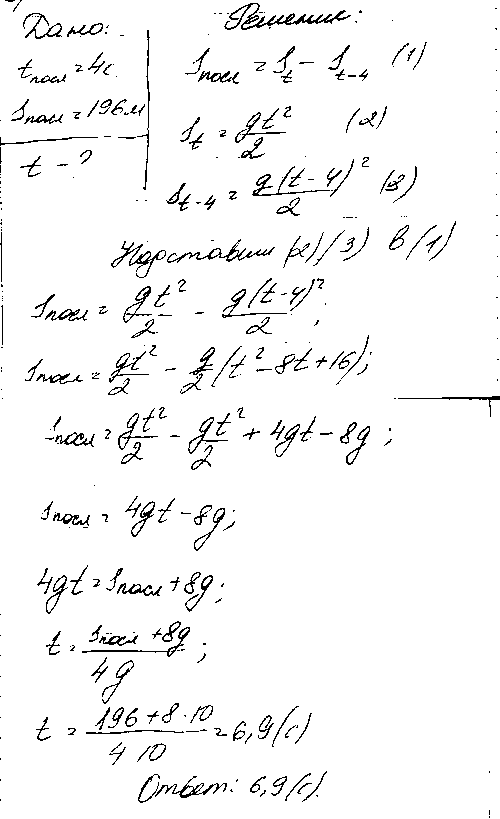 Дано:
t посл = 4с.
S посл = 196м
t - ?
Решение:
S посл = S t - S t-4 (1)
S t = gt²/2 (2)
S t-4 = g(t-4)²/2 (3)
Подставим (2)(3) в (1)
S посл = gt²/2 - g(t-4)²/2;
S посл = gt²/2 - g/2 (t²-8t+16);
S посл = gt²/2 - gt²/2 + 4gt - 8g;
S посл = 4gt - 8g;
4gt = S посл + 8g;
t = S посл + 8g / 4g;
t = 196+8·10 / 4 10 = 6,9(с)
Ответ: 6,9(с).